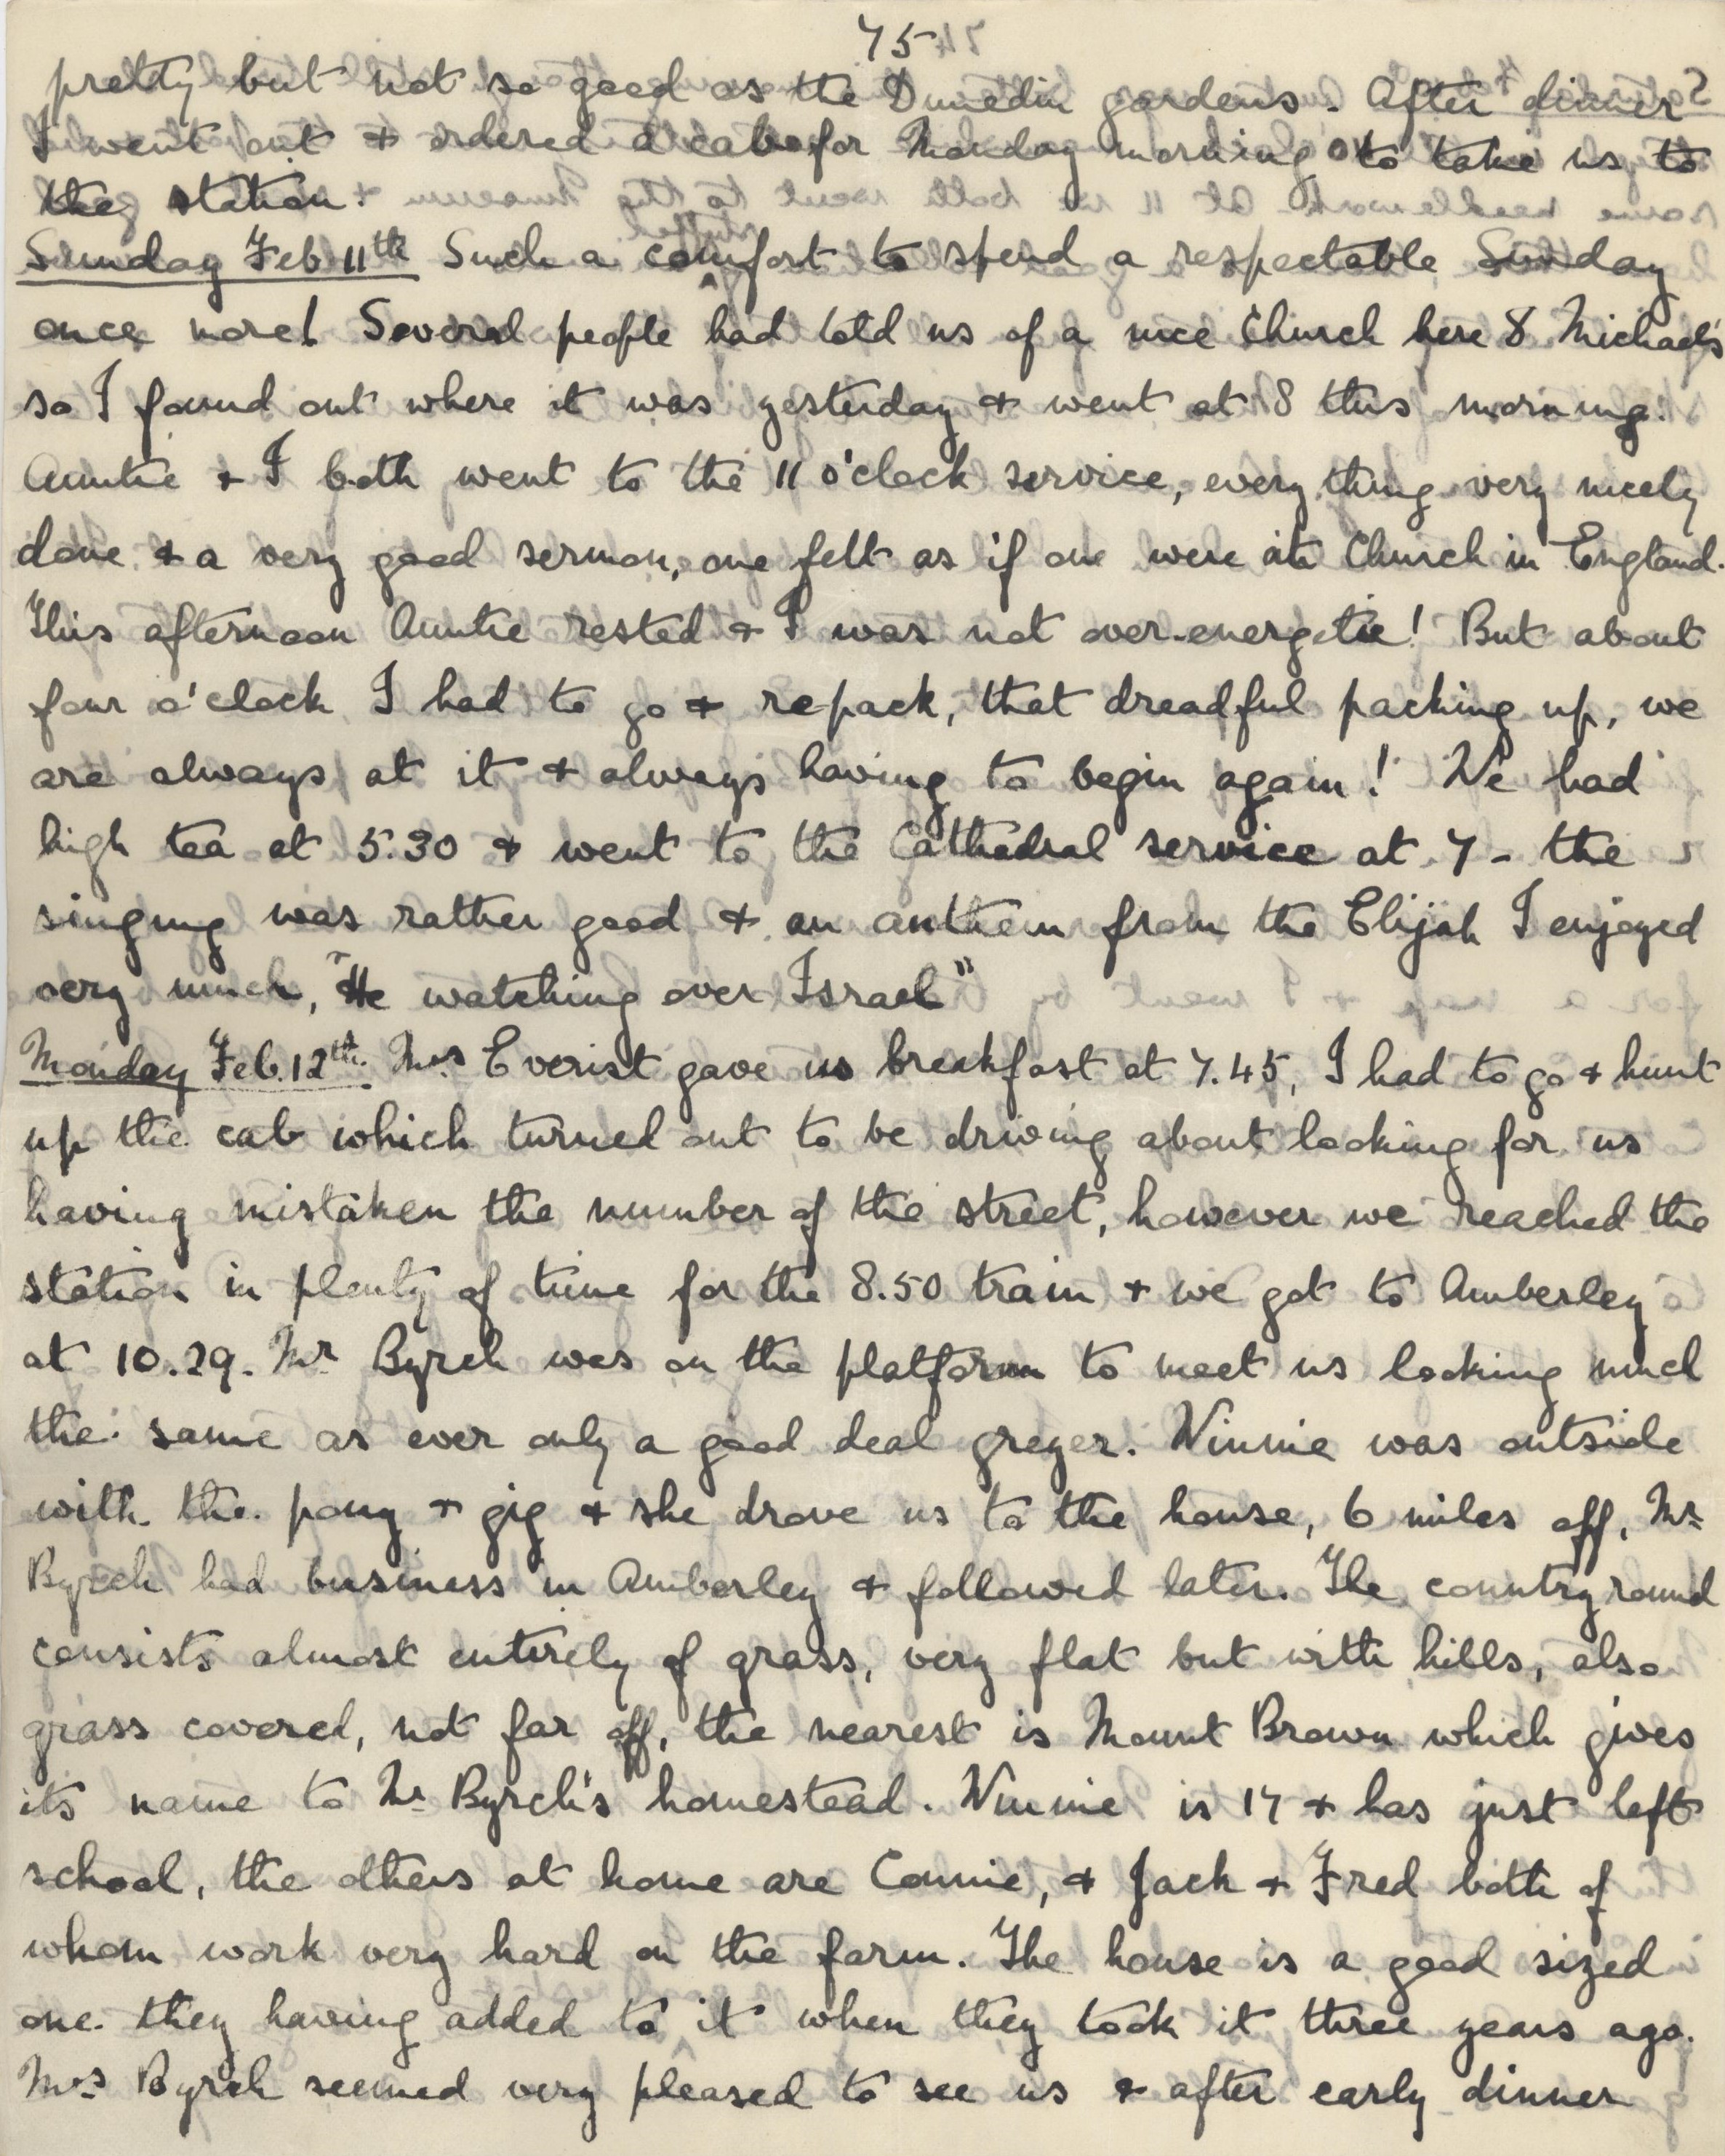 75
pretty but not so good as the Dunedin gardens. After dinner
I went out & ordered a cab for Monday morning to take us to
the station.
Sunday Feb 11th Such a comfort to spend a respectable Sunday
once more! Several people had told us of a nice Church here S Michael's
so I found out where it was yesterday & went at 8 this morning.
Auntie & I both went to the 11 o'clock service, every thing very nicely
done & a very good sermon, one felt as if one were at a Church in England.
This afternoon Auntie rested & I was not over-energetic! But about
four o'clock I had to go & repack, that dreadful packing up, we
are always at it & always having to begin again! We had
high tea at 5.30 & went to the Cathedral service at 7 - the
singing was rather good & an anthem from the Elijah I enjoyed
very much, "He watching over Israel"
Monday Feb. 12th. Mrs Everist gave us breakfast at 7.45, I had to go & hunt
up the cab which turned out to be driving about looking for us
having mistaken the number of the street, however we reached the
station in plenty of time for the 8.50 train & we got to Amberley
at 10.29. Mr Byrch was on the platform to meet us looking much
the same as ever only a good deal greyer. Winnie was outside
with the pony & gig & she drove us to the house, 6 miles off, Mr
Byrch had business in Amberley & followed later. The country round
consists almost entirely of grass, very flat but with hills, also
grass covered, not far off, the nearest is Mount Brown which gives
its name to Mr Byrch's homestead. Winnie is 17 & has just left
school, the others at home are Connie, & Jack & Fred both of
whom work very hard on the farm. The house is a good sized
one they having added to it when they took it three years ago.
Mrs Byrch seemed very pleased to see us & after early dinner